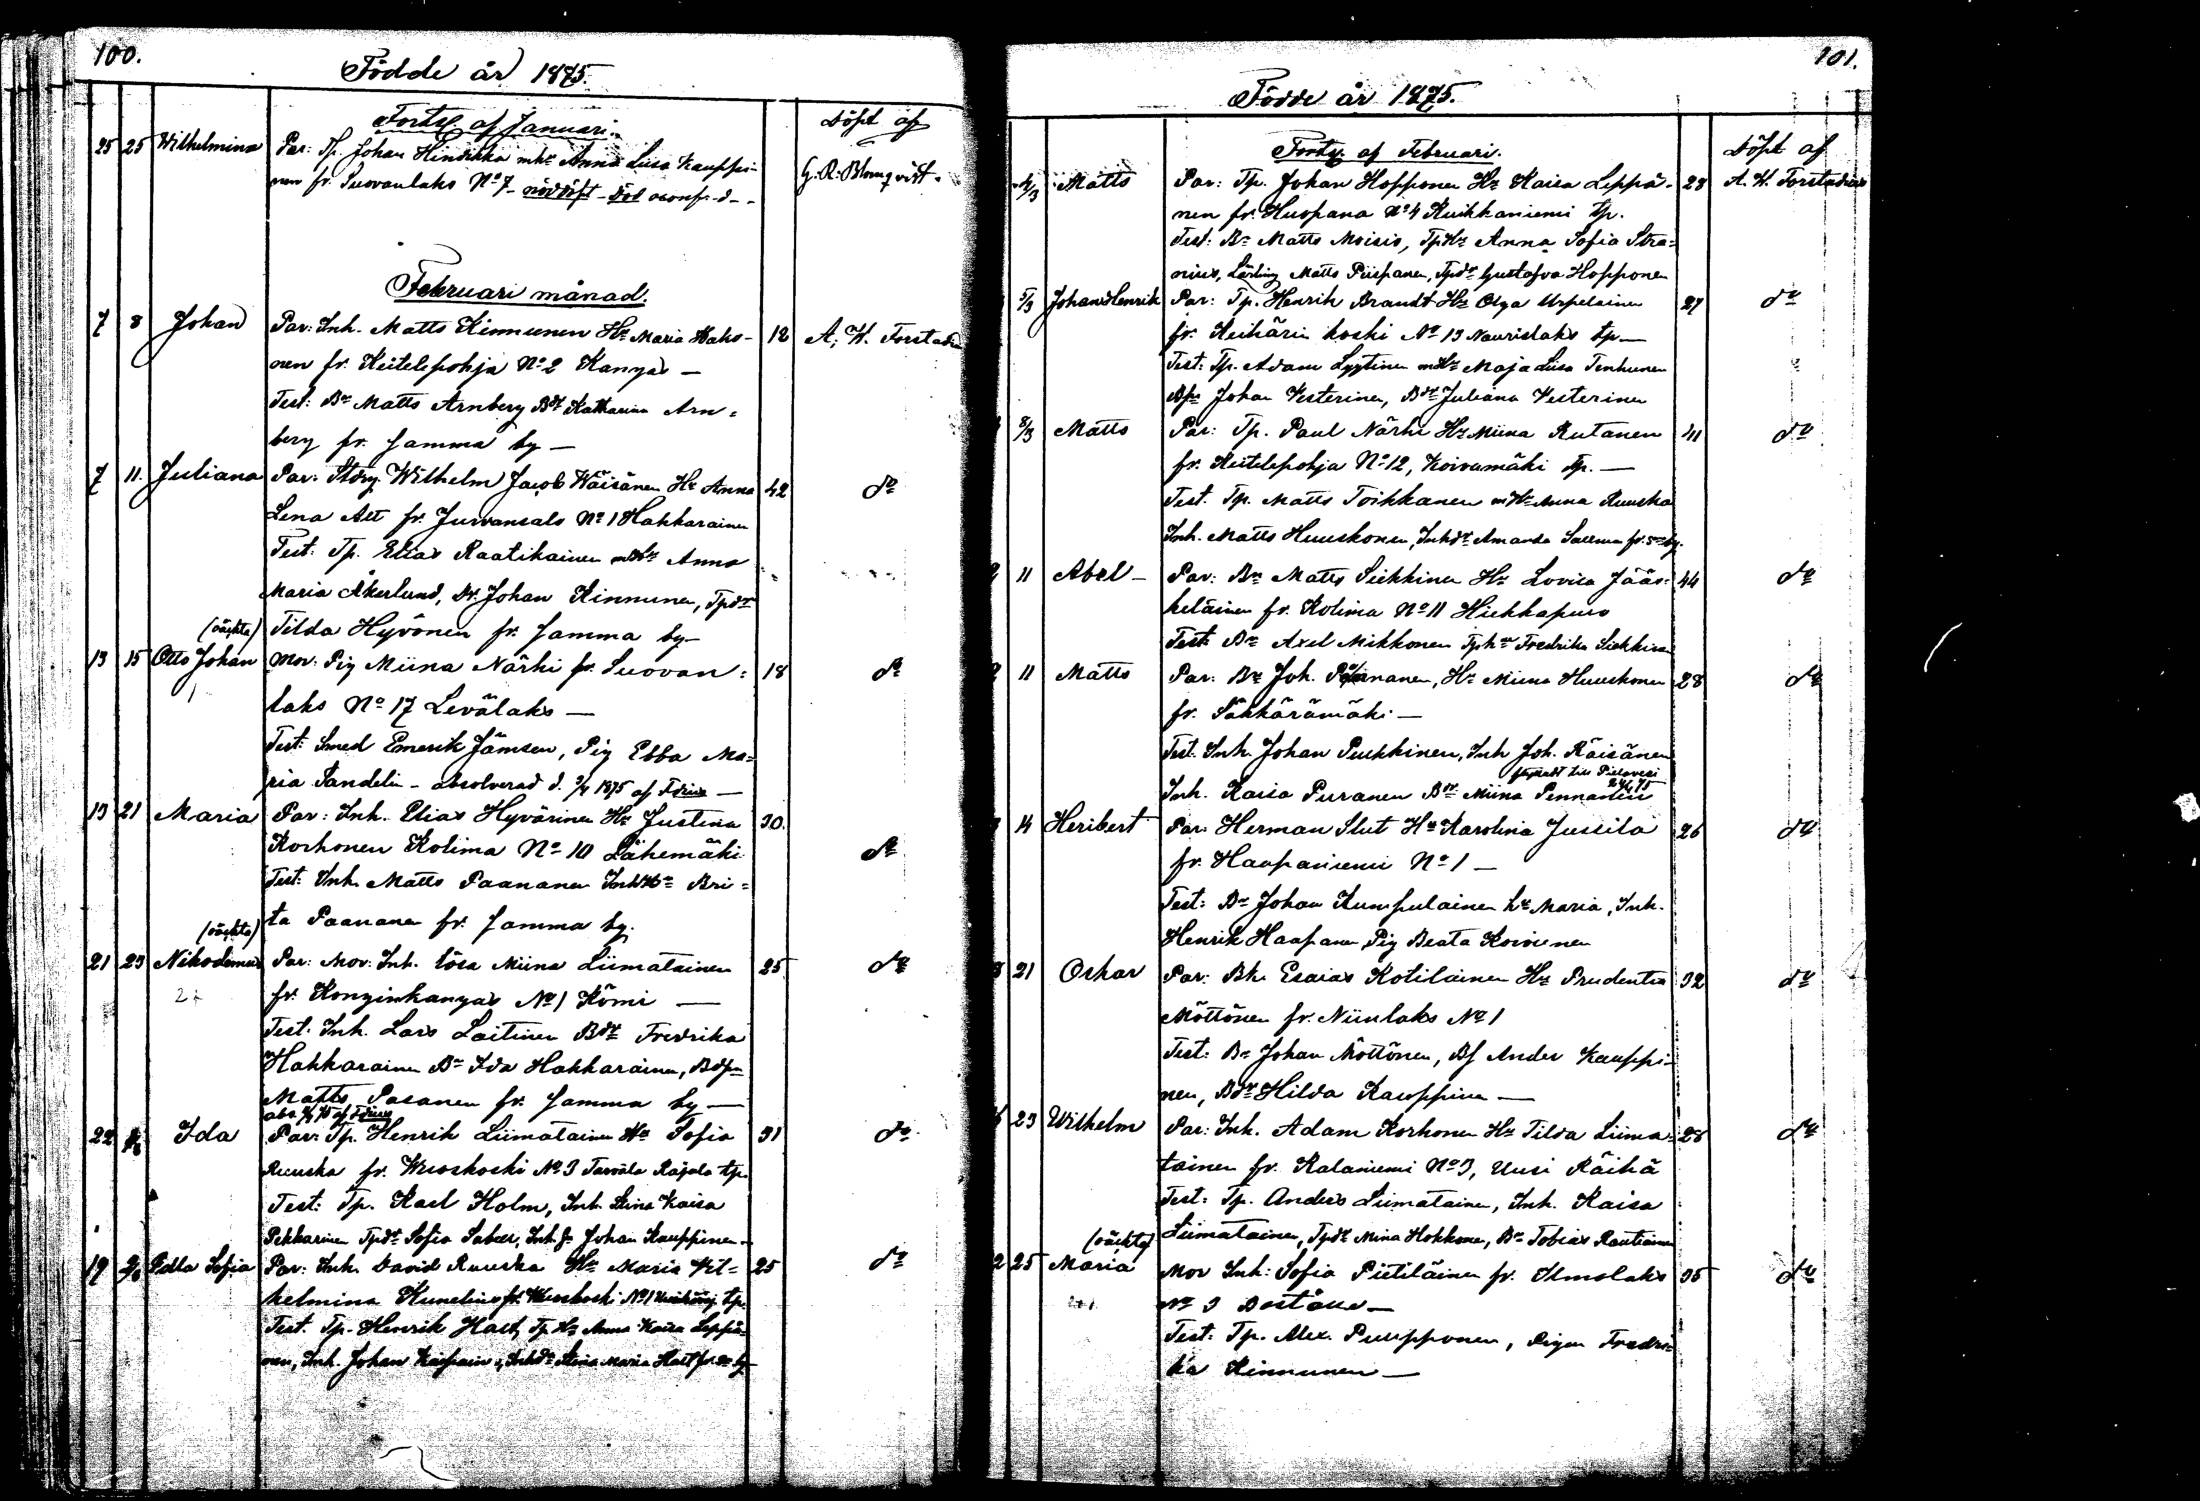 100.
Födde år 1875.
Forts. af Januari.
Döpt af
25 25 Wilhelmina Par: Tp. Johan Hindrikka mhr Anna Lisa Kauppi-
nen fr. Suovanlaks No 7 - nöddöpt - död
G. R. Blomqvist.
Februari månad.
7 8 Johan Par: Inh. Matts Kinnunen Hr Maria Hako- 12 A. W. Forstadius
nen fr. Keitelepohja No 2 Kangas —
Test: Br Matts Arnberg Bdr Katharina Arn=
berg fr. samma by —
7 11. Juliana Par: Stdrg Wilhelm Jacob Wäisänen Hr Anna 42 do
Lena Alt fr. Jurvansalo No 1 Hakkarainen
Test: Tp. Elias Raatikainen mhr Anna
Maria Åkerlund, Dr. Johan Kinnunen, Tpdr
Tilda Hyvönen fr. samma by —
(oäkta)
13 15 Otto Johan Mor: Pig Miina Närhi fr. Suovan= 18 do
laks No 17 Levälaks —
Test: Smed Emerik Jämsen, Pig Ebba Ma=
ria Sandelin - absolverad d. 1875 af —
13 21 Maria Par: Inh. Elias Hyvärinen Hr Justina 30. do
Korhonen Kolima No 10 Lähemäki
Test: Inh. Matts Paananen Inhhr Bri=
ta Paananen fr. samma by.
(oäkta)
21 23 Nikodemus Par: Mor: Inh. lösa Miina Liimatainen 25 do
fr. Konginkangas No 1 Kömi —
Test: Inh. Lars Laitinen Bdr Fredrika
Hakkarainen Br Ida Hakkarainen,
Matts Pasanen fr. samma by —
22 Ida Par: Tp. Henrik Liimatainen Hr Sofia 31 do
Ruuska fr. Wuoskoski No 3 Tarvala Rajala tp.
Test: Tp. Karl Holm, Inh. Stina Kaisa
Pekkarinen Tpdr Sofia Saber, Inh. Johan Kauppinen
19 Edla Sofia Par: Inh. David Ruuska Hr Maria Vil= 25 do
helmina Kunelius fr. Wuoskoski No 1 tp.
Test. Tp. Henrik Halt, Tp Hr Anna Kaisa Leppä=
nen, Inh. Johan, Inhdr Stina Maria Halt fr. by
101.
Födde år 1875.
Forts. af Februari.
Döpt af
Matts Par: Tp. Johan Hopponen Hr Kaisa Leppä- 28 A. W. Forstadius
nen fr. Huopana No 4 Kuikkaniemi tp.
Test: Br Matts Moisio, TpHr Anna Sofia Stra=
nius, Lärling Matts Piispanen, Tpdr Gustafva Hopponen
5/3 Johan Henrik Par: Tp. Henrik Brandt Hr Olga Urpelainen 27 do
fr. Keihärin koski No 13 Naurislaks tp —
Test: Tp. Adam Lyytinen mHr Maja Lisa Tenhunen
Johan Vesterinen, Bdr Juliana Vesterinen
8/3 Matts Par: Tp. Paul Närhi Hr Miina Rutanen 41 do
fr. Keitelepohja No 12, Koivumäki Tp. —
Test. Tp. Matts Toikkanen mHr Anna Ruuska
Inh. Matts Huuskonen, Inhdr Amanda fr. by.
11 Abel — Par: Br Matts Siekkinen Hr Lovisa Jääs- 44 do
keläinen fr. Kolima No 11 Hiekkapuro
Test: Br Axel Mikkonen Fredrika Siekkinen
11 Matts Par: Br Joh. Hr Miina Huuskonen 28 do
fr. Säkkärämäki —
Test. Inh. Johan Purkkinen, Inh Joh. Räisänen
flyttadt till Pielavesi
Inh. Kaisa Puranen Bdr Miina Pennanen
14 Heribert Par: Herman Slut Hr Karolina Jussila 26 do
fr. Haapaniemi No 1 —
Test: Br Johan Kumpulainen hr Maria, Inh.
Henrik Haapanen, Pig Beata Koivunen
21 Oskar Par: Bk. Esaias Kotilainen Hr Prudentia 32 do
Möttönen fr. Niinlaks No 1
Test: Br Johan Möttönen, Bs Anders Kauppi-
nen, Bdr Hilda Kauppinen —
23 Wilhelm Par: Inh. Adam Korhonen Hr Tilda Liima= 28 do
tainen fr. Kalaniemi No 3, Uusi Räihä
Test: Tp. Anders Liimatainen, Inh. Kaisa
Liimatainen, Tpdr Mina Hokkanen, Br Tobias Rautiainen
(oäkta)
25 Maria Mor Inh: Sofia Piitiläinen fr. Ilmolaks 35 do
No 3 Boställe —
Test: Tp. Alex. Puupponen, Pigan Fredri=
ka Kinnunen —